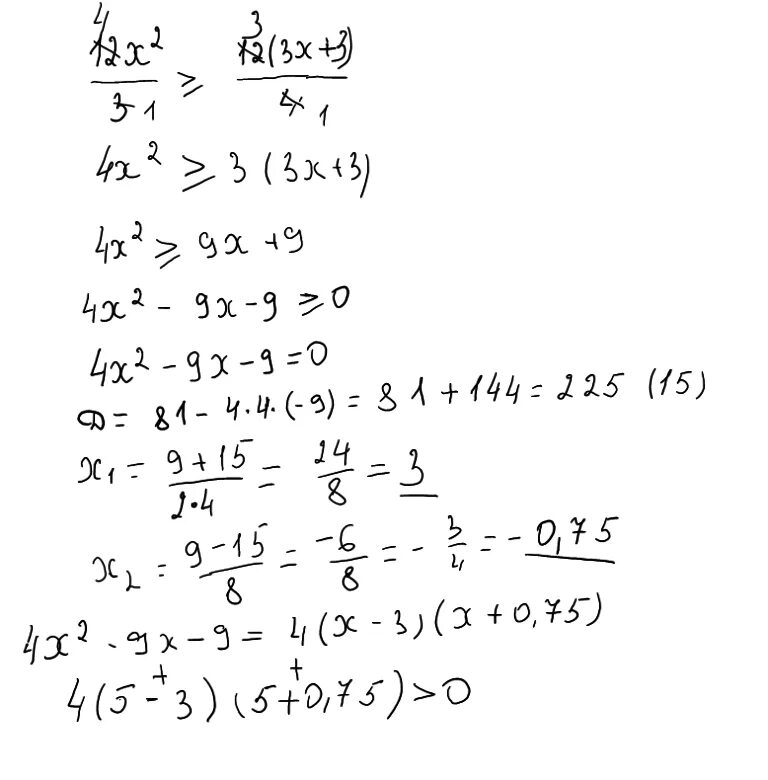 12x²/3 ≥ 12(3x+3)/4 4 1 3 1
4x² ≥ 3 (3x+3)
4x² ≥ 9x +9
4x² - 9x-9 ≥0
4x² -9x -9 =0
D= 81- 4·4·(-9) = 81+144= 225 (15)
x₁ = 9+15/2·4 = 24/8 = 3
x₂ = 9-15/8 = -6/8 = - 3/4 = - 0,75
4x² - 9x-9= 4(x-3)(x+0,75)
+ +
4(5-3) (5+0,75)>0